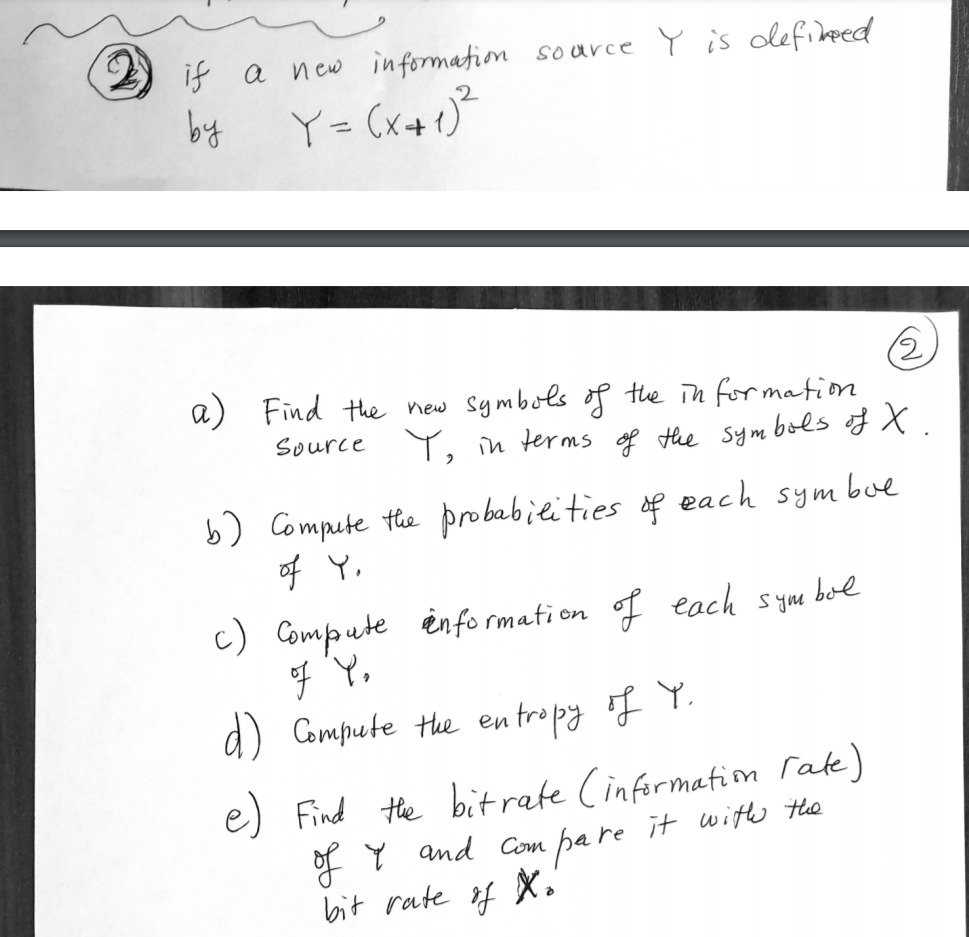 ② if a new information source Y is defined
by Y = (X+1)²
②
a) Find the new symbols of the information
source Y, in terms of the symbols of X.
b) Compute the probabilities of each symbol
of Y.
c) Compute information of each symbol
of Y.
d) Compute the entropy of Y.
e) Find the bitrate (information rate)
of Y and compare it with the
bit rate of X.